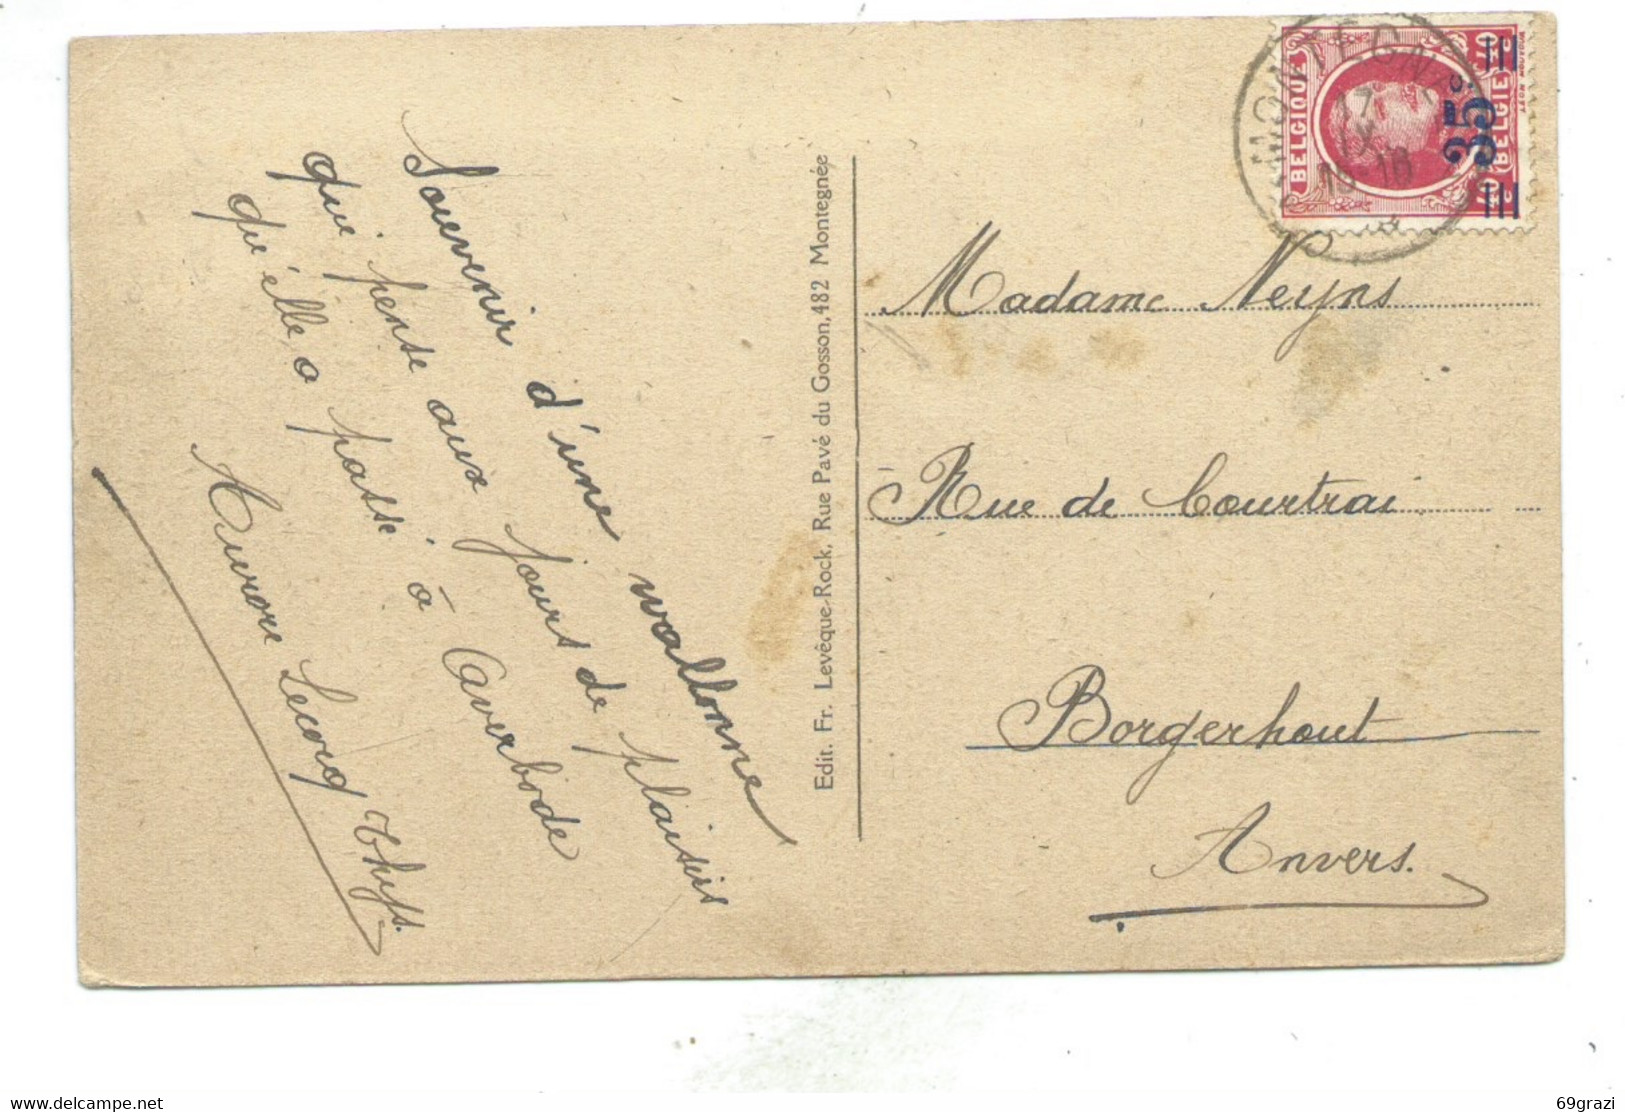 Souvenir d'une wallonne
qui pense aux jours de plaisirs
qu'elle a passé à Averbode
Aurore Lecocq Thyss.
Edit. Fr. Levêque-Rock, Rue Pavé du Gosson, 482 Montegnée
MONTEGNÉE
17
IX
BELGIQUE
BELGIE
35c
40
40
Madame Neyns
Rue de Courtrai
Borgerhout
Anvers.
www.delcampe.net
69grazi